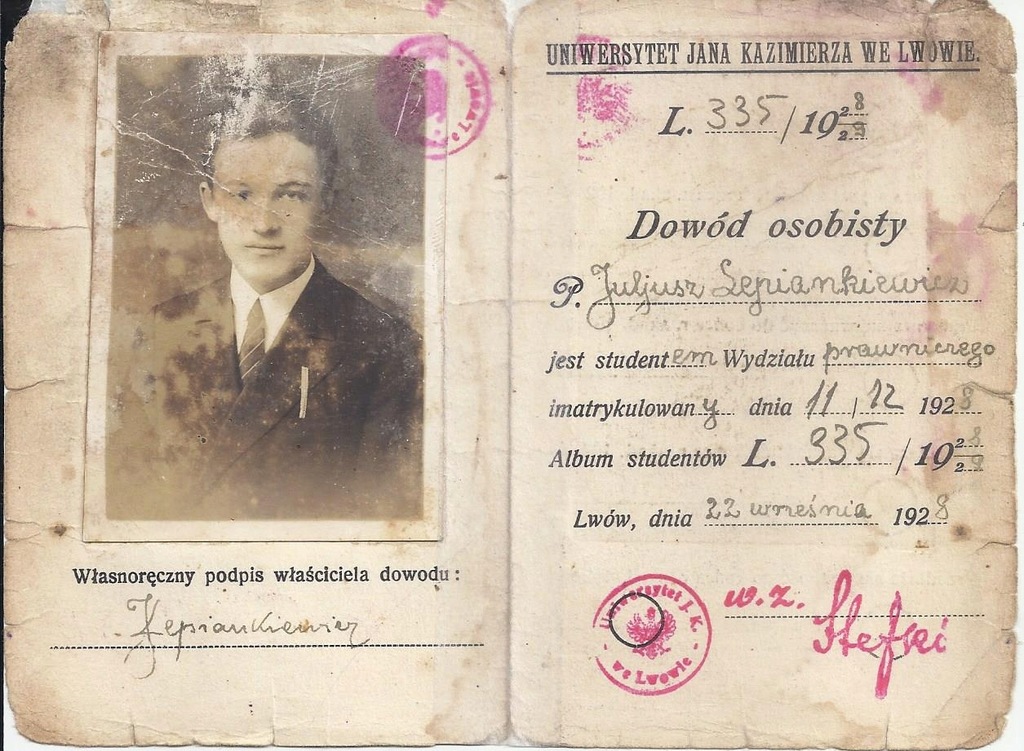 e Lwowie
Własnoręczny podpis właściciela dowodu:
UNIWERSYTET JANA KAZIMIERZA WE LWOWIE.
L. 335 / 19 28/29
Dowód osobisty
P. Juljusz Sepiankiewicz
jest studentem Wydziału prawniczego
imatrykulowany dnia 11 / 12 1928
Album studentów L. 335 / 19 28/29
Lwów, dnia 22 września 1928
Uniwersytet J. K.
we Lwowie
w. z.